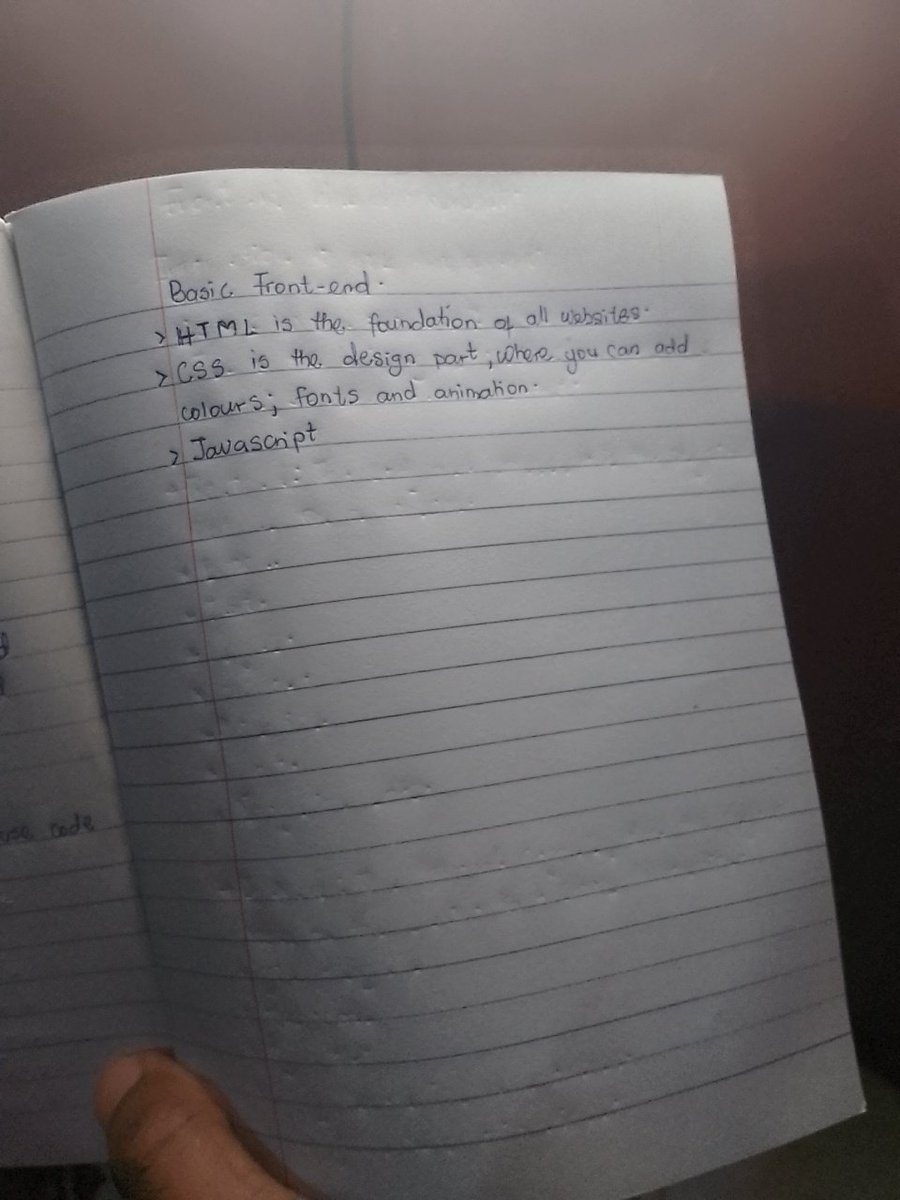 Basic Front-end.
> HTML is the foundation of all websites.
> CSS is the design part, where you can add
colours; fonts and animation.
> Javascript
code